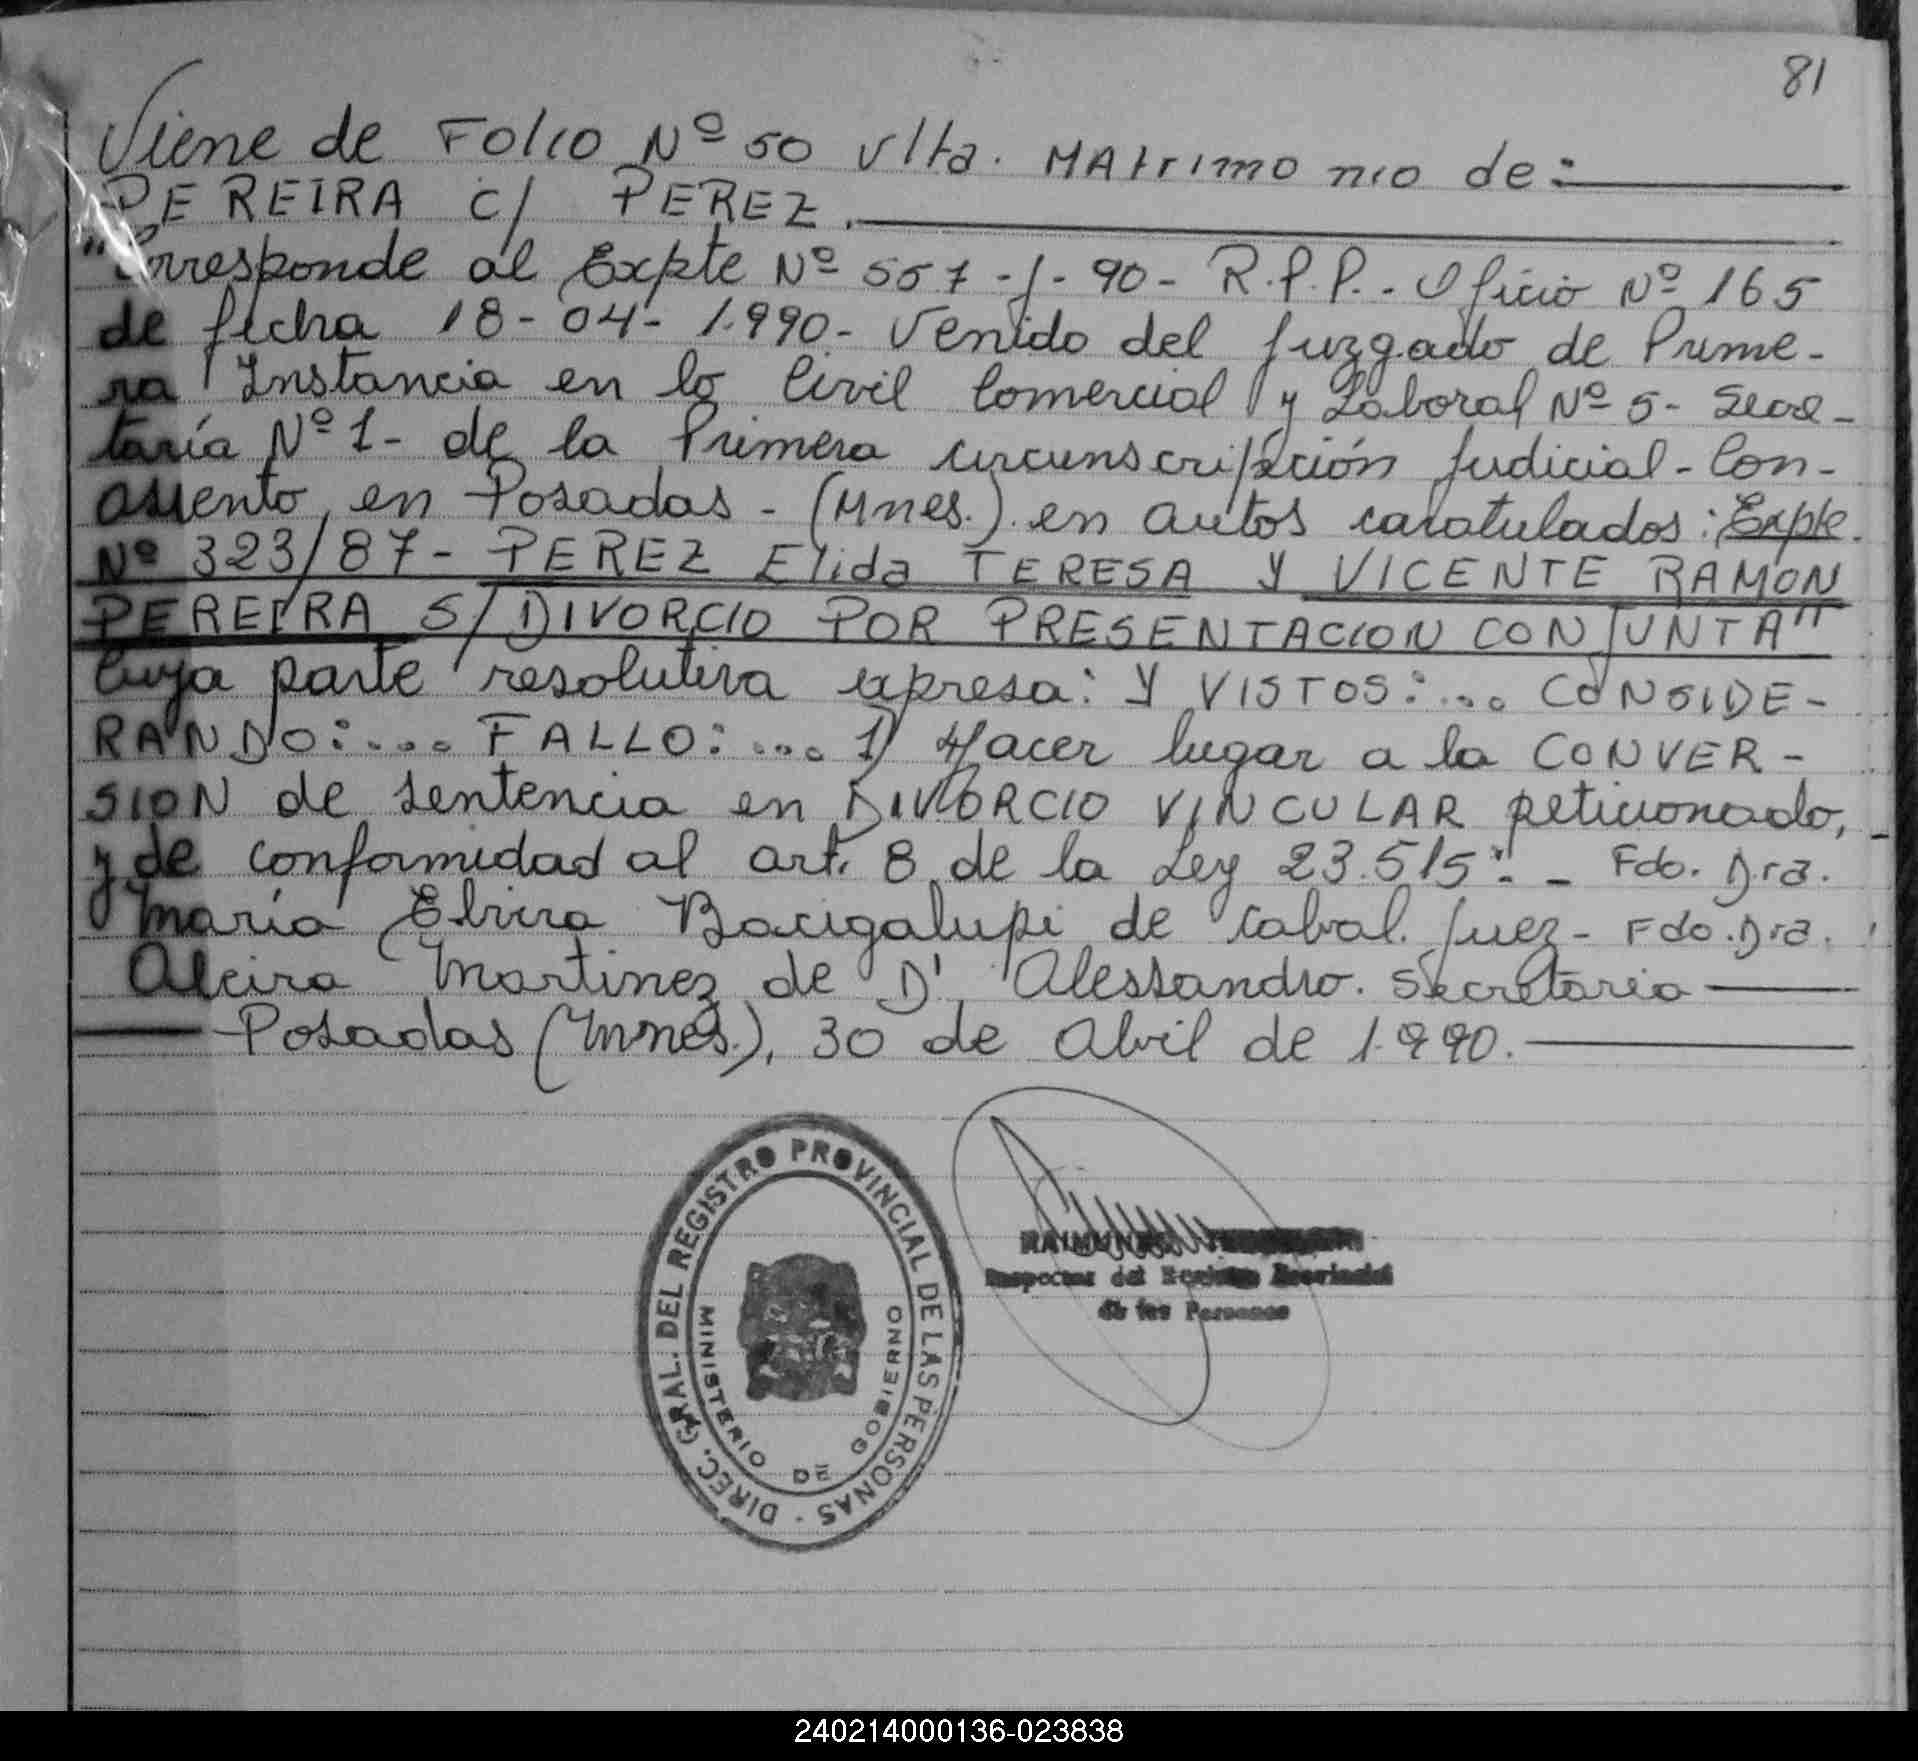 81
Viene de Folio Nº 50 vlta. MAtrimonio de:
PEREIRA c/ PEREZ.
"Corresponde al Expte Nº 557-J-90- R.P.P.- Oficio Nº 165
de fecha 18-04-1.990- Venido del Juzgado de Prime-
ra Instancia en lo Civil Comercial y Laboral Nº 5- Secre-
taría Nº 1- de la Primera circunscripción Judicial- Con-
asiento en Posadas- (Mnes.) en autos caratulados: Expte.
Nº 323/87- PEREZ Elida TERESA Y VICENTE RAMON
PEREIRA S/ DIVORCIO POR PRESENTACION CONJUNTA"
Cuya parte resolutiva expresa: Y VISTOS:... CONSIDE-
RANDO:.... FALLO:.... 1) Hacer lugar a la CONVER-
SION de sentencia en DIVORCIO VINCULAR peticionado,-
y de conformidad al art. 8 de la Ley 23.515:- Fdo. Dra.
María Elvira Bacigalupi de Cabral. Juez- Fdo. Dra.
Alcira Martinez de D' Alessandro. Secretaria
Posadas (Mnes.), 30 de Abril de 1.990.
DIREC. GRAL. DEL REGISTRO PROVINCIAL DE LAS PERSONAS -
MINISTERIO DE GOBIERNO
Inspector del Registro Provincial
de las Personas
240214000136-023838